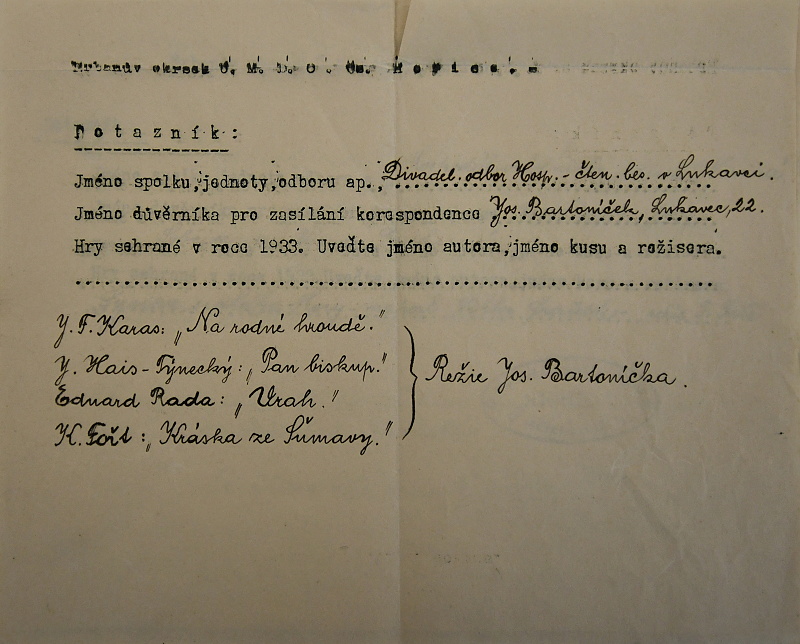 Urbanův okrsek Ú. M. D. O. Čs. Hořice.
Dotazník:
Jméno spolku, jednoty, odboru ap., Divadel. odbor Hosp. - čten. bes. v Lukavci.
Jméno důvěrníka pro zasílání korespondence Jos. Bartoníček, Lukavec, 22.
Hry sehrané v roce 1933. Uveďte jméno autora, jméno kusu a režisera.
J. F. Karas: „Na rodné hroudě."
J. Hais-Týnecký: „Pan biskup."
Eduard Rada: „Vrah."
K. Fořt: „Kráska ze Šumavy."
Režie Jos. Bartoníčka.